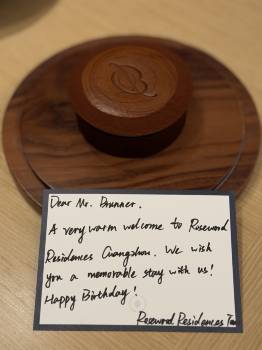 B
Dear Mr. Brunner.
A very warm welcome to Rosewood
Residences Guangzhou. We wish
you a memorable stay with us!
Happy Birthday!
Rosewood Residences